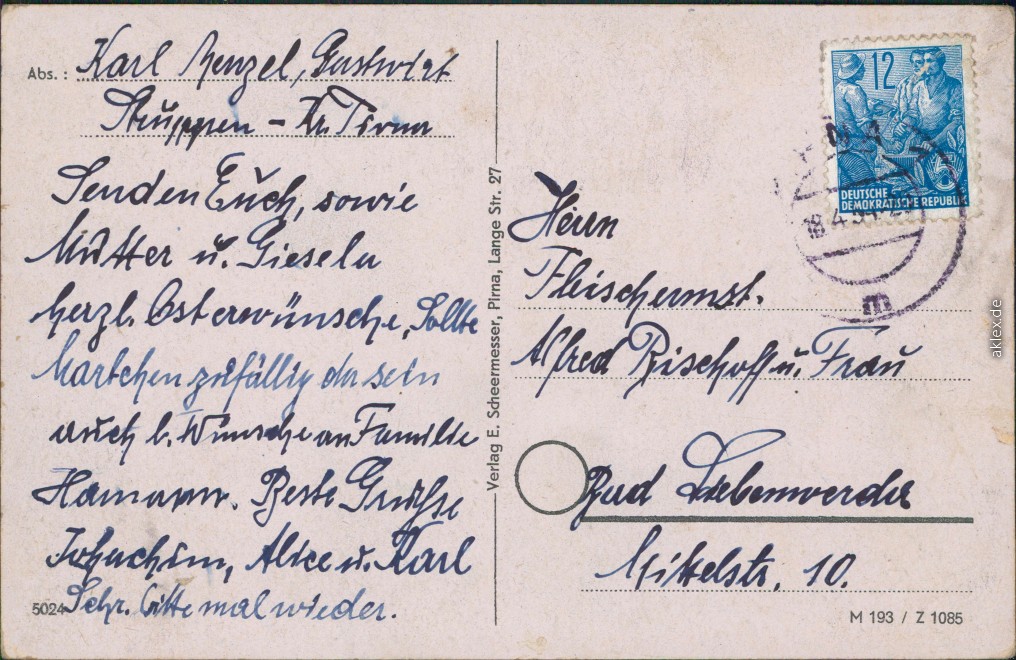 Abs.: Karl Menzel, Gastwirt
Struppen - Kr. Pirna
Senden Euch, sowie
Mutter u. Giesela
herzl. Osterwünsche, Sollte
Martchen zufällig da sein
auch h. Wünsche an Familie
Hamann. Beste Grüße
Johachim, Alice u. Karl
Schr. bitte mal wieder.
5024
Verlag E. Scheermesser, Pirna, Lange Str. 27
12
DEUTSCHE
DEMOKRATISCHE REPUBLIK
18.4.54
m
Herrn
Fleischermst.
Alfred Bischoff u. Frau
Bad Liebenwerda
Mittelstr. 10.
M 193 / Z 1085
aklex.de